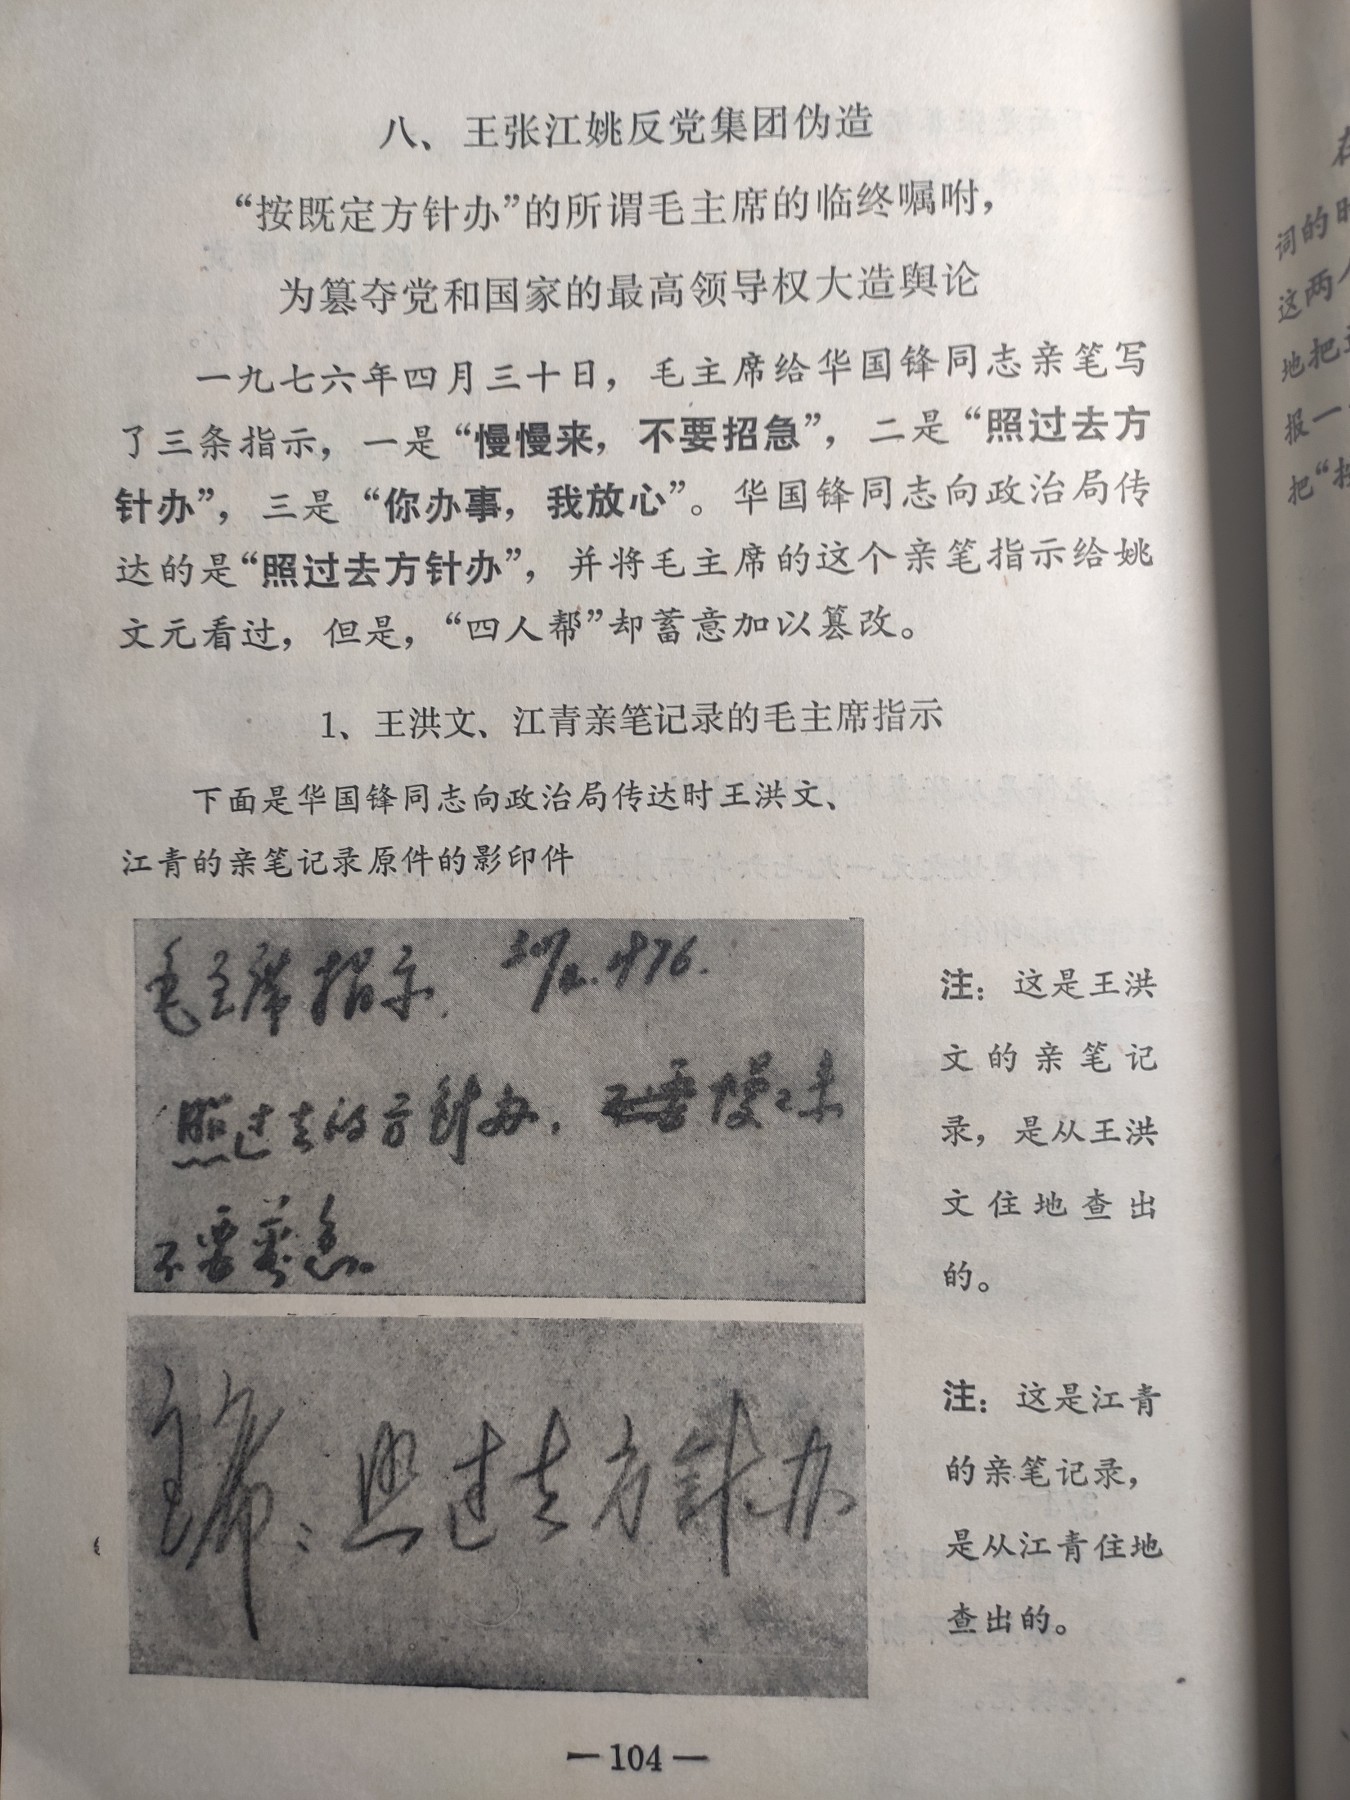 八、王张江姚反党集团伪造
“按既定方针办”的所谓毛主席的临终嘱咐，
为篡夺党和国家的最高领导权大造舆论
一九七六年四月三十日，毛主席给华国锋同志亲笔写
了三条指示，一是“慢慢来，不要招急”，二是“照过去方
针办”，三是“你办事，我放心”。华国锋同志向政治局传
达的是“照过去方针办”，并将毛主席的这个亲笔指示给姚
文元看过，但是，“四人帮”却蓄意加以篡改。
1、王洪文、江青亲笔记录的毛主席指示
下面是华国锋同志向政治局传达时王洪文、
江青的亲笔记录原件的影印件
毛主席指示
照过去的方针办，不要慢慢来
不要着急。
注：这是王洪
文的亲笔记
录，是从王洪
文住地查出
的。
主席：照过去方针办
注：这是江青
的亲笔记录，
是从江青住地
查出的。
—104—
词的时
这两人
地把
报一
把“按